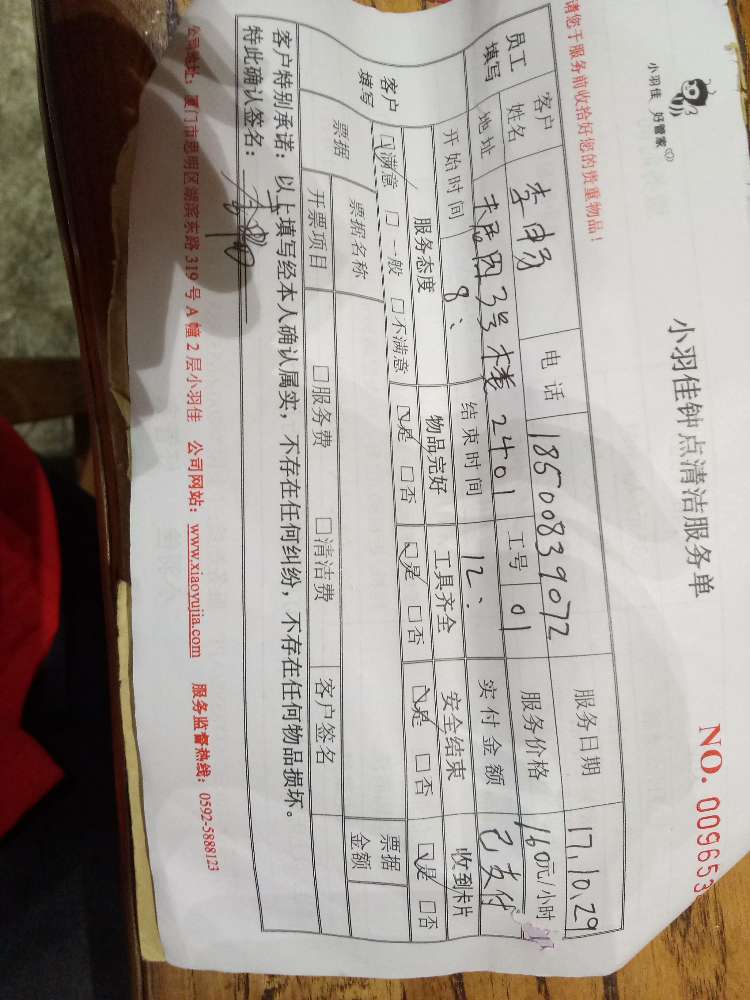 小羽佳 好管家
小羽佳钟点清洁服务单
NO. 009653
请您于服务前收拾好您的贵重物品！
服务日期 17.10.29
员工填写 客户姓名 李 电话 18500839072 服务价格 160元/小时
地址 3号楼2401 工号 01 实付金额 已支付
开始时间 8： 结束时间 12：
客户填写 服务态度 物品完好 工具齐全 安全结束 收到卡片
☑满意 □一般 □不满意 ☑是 □否 ☑是 □否 ☑是 □否 ☑是 □否
票据 票据名称 票据金额
开票项目 □服务费 □清洁费 客户签名
客户特别承诺：以上填写经本人确认属实，不存在任何纠纷，不存在任何物品损坏。
特此确认签名：
公司地址：厦门市思明区湖滨东路319号A幢2层小羽佳 公司网站：www.xiaoyujia.com 服务监督热线：0592-5888123